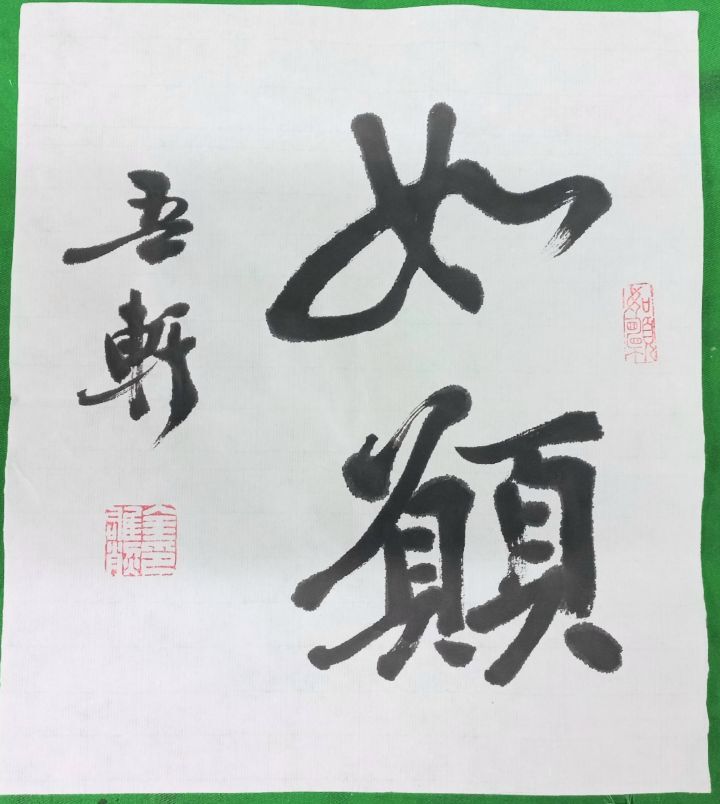 如願
吾軒